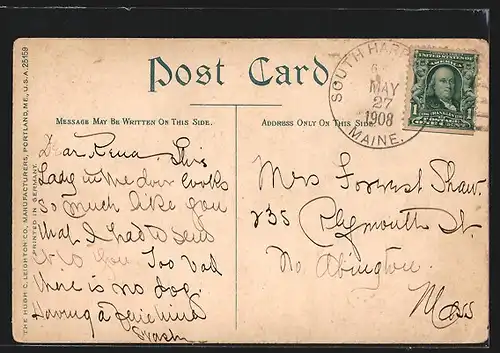 THE HUGH C. LEIGHTON CO., MANUFACTURERS, PORTLAND, ME., U.S.A. 25159
PRINTED IN GERMANY
Post Card
MESSAGE MAY BE WRITTEN ON THIS SIDE.
Dear Rena. This
Lady in the door looks
so much like you
that I had to send
it to you. Too bad
there is no dog.
Having a fine time
ADDRESS ONLY ON THIS SIDE.
SOUTH HARP
MAY
27
1908
MAINE.
UNITED STATES OF
AMERICA
1 1
Mrs Forrest Shaw.
235 Plymouth St.
No. Abington.
Mass